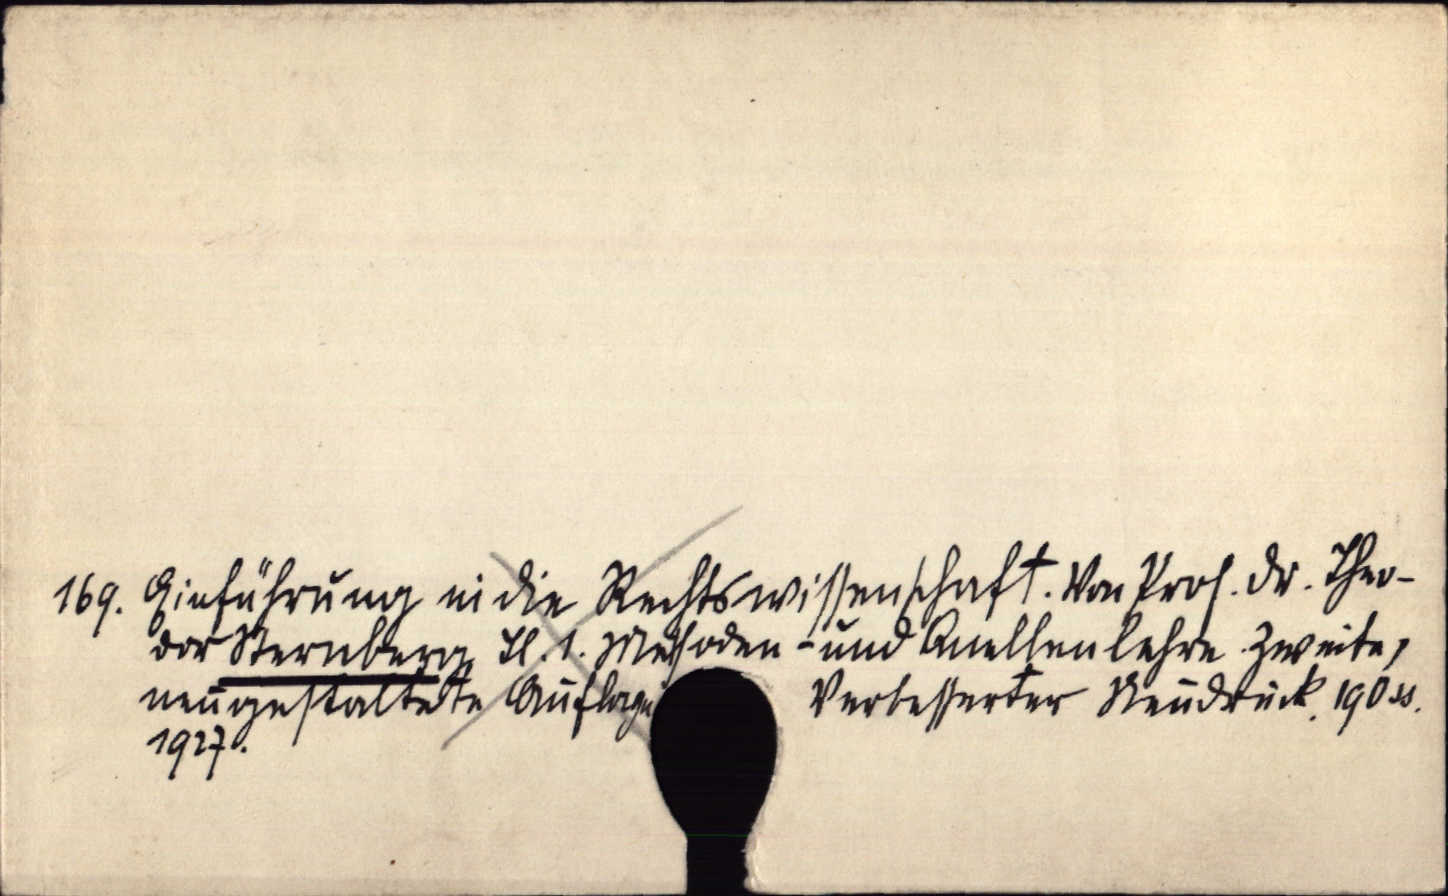 169. Einführung in die Rechtswissenschaft. Von Prof. Dr. Theo-
dor Sternberg Tl. 1. Methoden- und Quellenlehre. Zweite,
neugestaltete Auflage Verbesserter Neudruck. 190 ss.
1927.